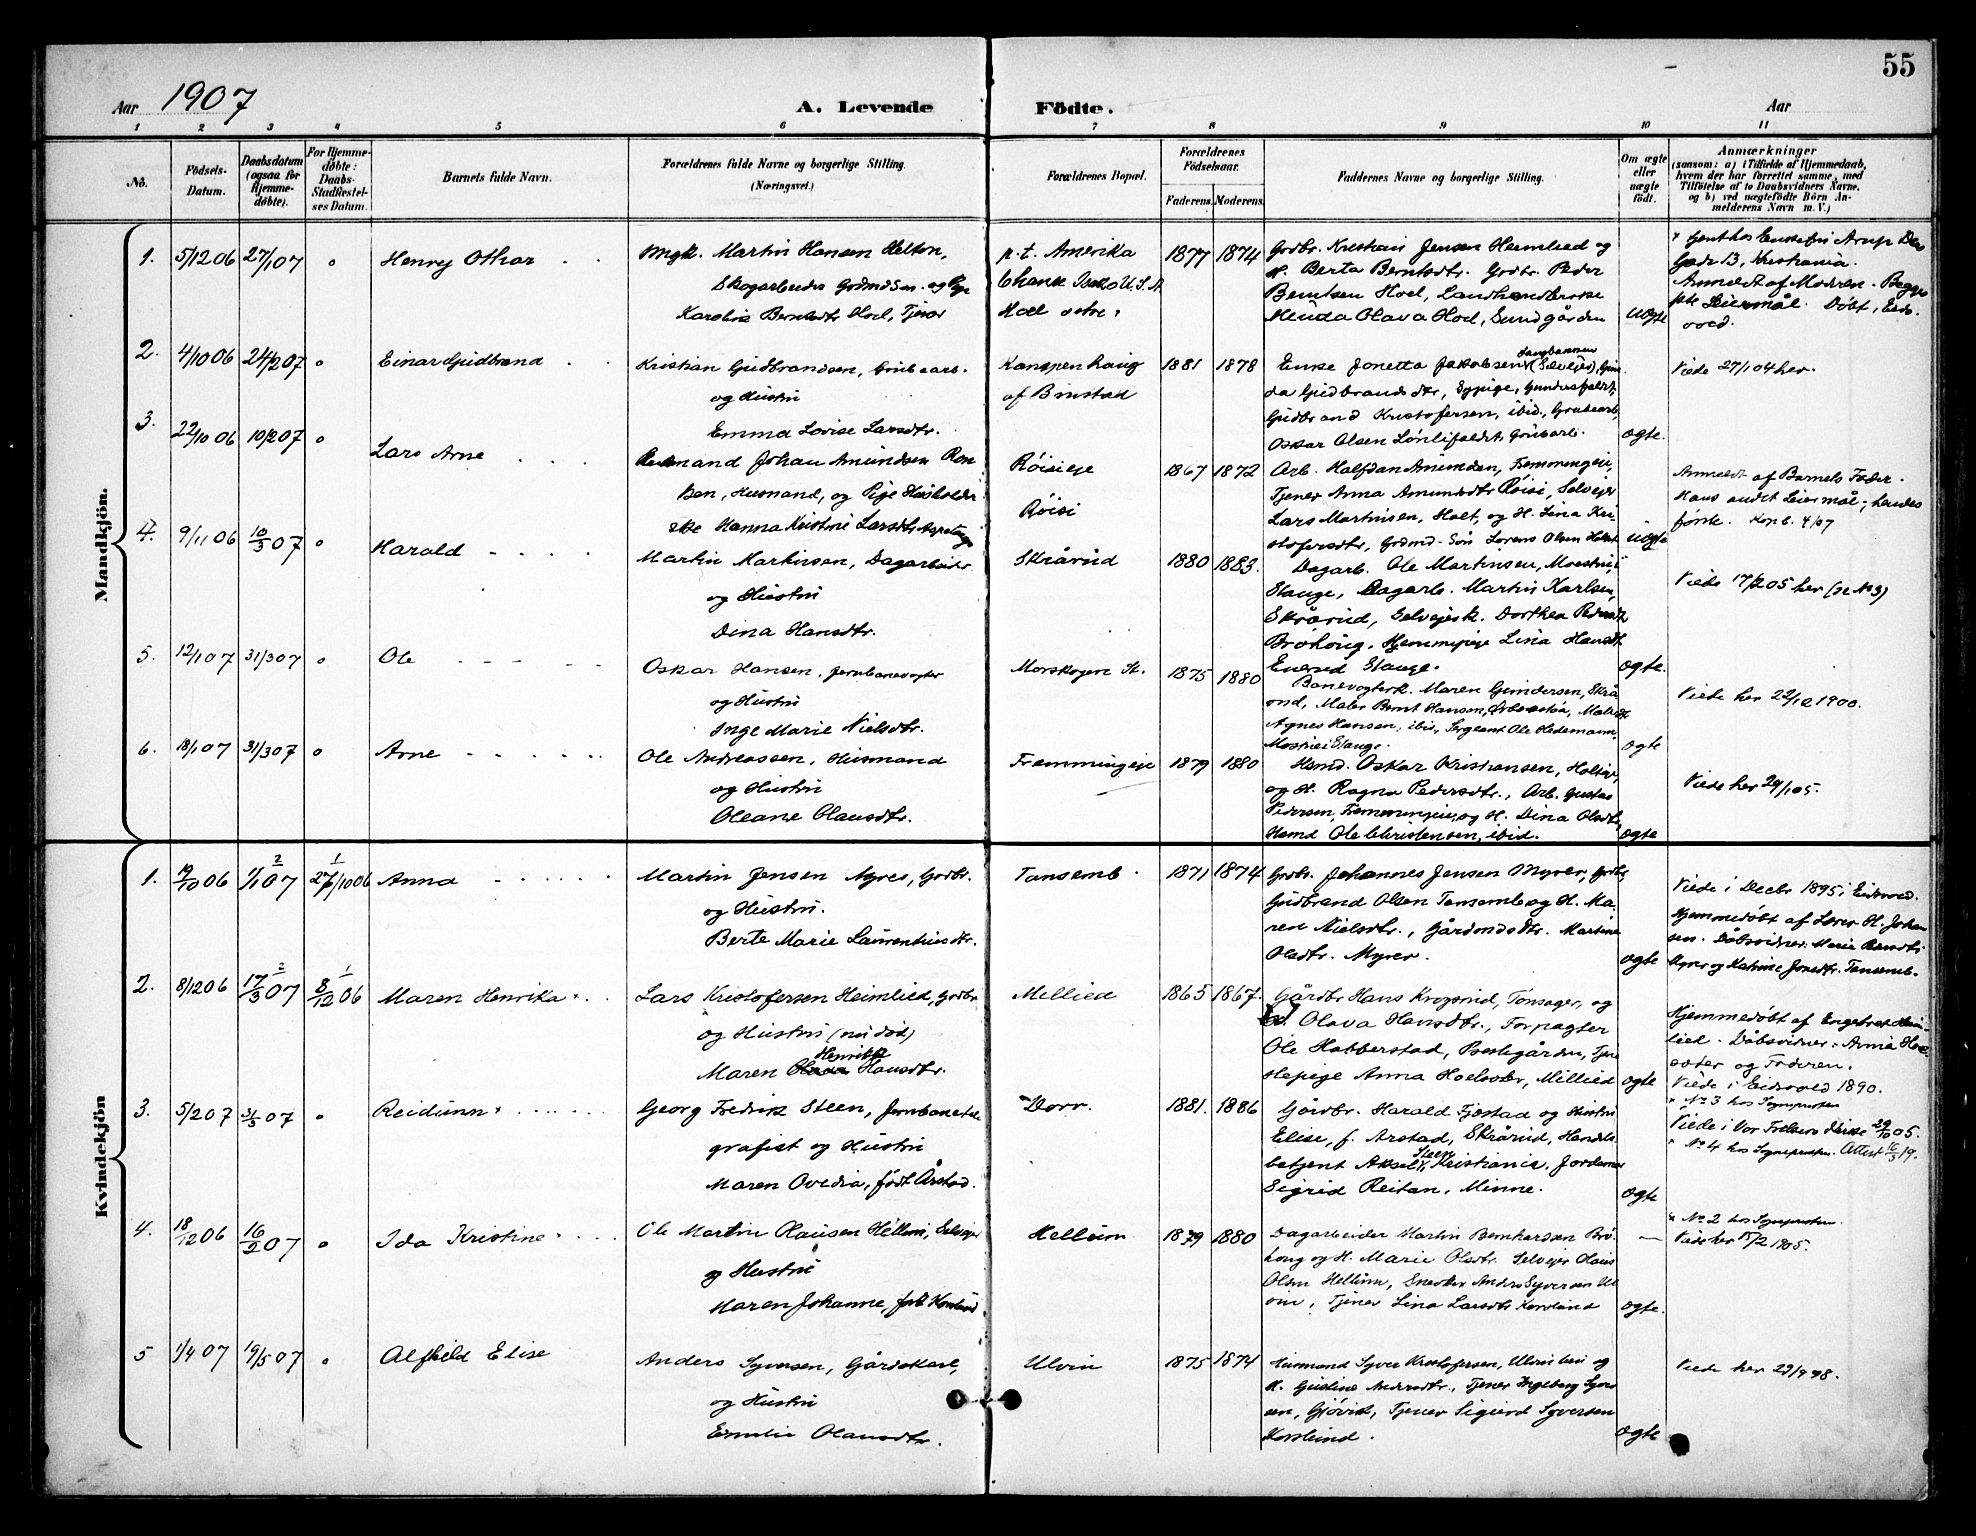 55
Aar 1907
A. Levende Födte.
Aar
1 2 3 4 5 6 7 8 9 10 11
No.
Födsels-Datum.
Daabsdatum (ogsaa for Hjemme-døbte).
For Hjemme-døbte: Daabs-Stadfæstel-ses Datum.
Barnets fulde Navn.
Forældrenes fulde Navne og borgerlige Stilling. (Næringsvei.)
Forældrenes Bopæl.
Forældrenes Födselsaar.
Faderens. Moderens.
Faddernes Navne og borgerlige Stilling.
Om ægte eller uægte födt.
Anmærkninger
(saasom: a) i Tilfælde af Hjemmedaab, hvem der har forrettet samme, med Tilföielse af to Daabsvidners Navne, og b) ved uægtefödte Börn Anmelderens Navn m. V.)
Mandkjön.
1. 5/12 06 27/1 07 " Henry Othar
Ungk. Martin Hansen Helton,
Skogarbeider Grdmd Søn. og Pige
Karoline Berntsdtr Hoel, Tjener
p.t. Amerika
Hoel østre
1877 1874
Grdbr. Kristian Jensen Heimlied og
H. Berta Berntsdtr. Grdbr. Peder
Berntsen Hoel, Landhandlerske
Olava Hoel, Sundgården
uægte
Gade 13, Kristiania.
Anmeldt af Moderen. Begges
1ste Leiermål. Døbt i Eidsvold.
2. 4/10 06 24/2 07 " Einar Gudbrand
Kristian Gudbrandsen, Grubearb.
og Hustru
Emma Lovise Larsdtr.
af Brustad
1881 1878
Enke Jonetta Jakobsen
Gudbrandsdtr, Sypige,
Gudbrand Kristofersen, ibid, Grubearb,
Oskar Olsen Lønlifaldt, Grubarb.
ægte.
Viede 27/1 04 her.
3. 22/10 06 10/2 07 " Lars Arne
Johan Amundsen
Husmand, og Pige Husholder
ske Hanna Kristine Larsdtr
Røisieie
Røisi
1867 1872
Arb. Halfdan Amundsen, Fremmingeie,
Tjener Anna Amundsdtr Røisi, Selveier
Lars Martinsen, Holt, og H. Lina Kri-
stofersdtr, Grdmd. Søn Lorens Olsen
uægte
Anmeldt af Barnets Fader.
Hans andet Leiermål, hendes
første. Konb. 4/07
4. 9/11 06 10/3 07 " Harald
Martin Martinsen, Dagarbeider
og Hustru
Dina Hansdtr.
Skrårud
1880 1883.
Dagarb. Ole Martinsen,
Stange, Dagarb. Martin Karlsen,
Skrårud, Selveiersk. Dorthea Pedersdtr
Brøhoug, Hjemmepige Lina Hansdtr.
Enersed Stange.
ægte.
Viede 17/2 05 her (se No 3)
5. 12/1 07 31/3 07 " Ole
Oskar Hansen, Jernbanevogter
og Hustru
Inge Marie Nielsdtr.
Morskogen St.
1875 1880
Banevogtersk. Maren Gundersen,
Maler Bernt Hansen,
Agnes Hansen, ibid, Sergeant Ole Hedemann
Stange.
ægte
Viede her 22/12 1900.
6. 18/1 07 31/3 07 " Arne
Ole Andreassen, Husmand
og Hustru
Oleane Olausdtr.
Fremmingeie
1879 1880
Husmd. Oskar Kristiansen, Holteie,
og H. Ragna Pedersdtr., Arb. Gustav
Pedersen, Fremmingeie, og H. Dina Olsdtr,
Husmd Ole Christensen, ibid.
ægte
Viede her 29/1 05.
Kvindekjön
1. 19/10 06 1/1 07 27/10 06 Anna
Martin Jensen Myrer, Grdbr.
og Hustru.
Berte Marie Laurentiusdtr.
Tønsemb.
1871 1874
Grdbr. Johannes Jensen Myrer, Grdbr,
Gudbrand Olsen Tønsemb og H. Ma-
ren Nielsdtr., Gårdmdsdtr. Martine
Olsdtr. Myrer.
ægte
Viede i Decbr 1895 i Eidsvold.
Hjemmedøbt af Lærer H. Johan
sen. Dåbsvidner: Marie Berntdtr
Myrer og Katrine Jonsdtr. Tønsemb.
2. 8/12 06 17/3 07 8/12 06 Maren Henrika
Lars Kristofersen Heimlied, Grdbr
og Hustru (nu død)
Maren Henrikke Hansdtr.
Mellied
1865 1867.
Gårdbr Hans Krogsrud, Tønsager, og
H. Olava Hansdtr., Forpagter
Ole Habberstad, Prestegården, Tjene
stepige Anna Hoelsæter, Millied
ægte
Hjemmedøbt af Engebret Heim-
lied. Dåbsvidner: Anna Hoel-
sæter og Faderen.
Viede i Eidsvold 1890.
3. 5/2 07 31/3 07 " Reidunn
Georg Fredrik Steen, Jernbanetele
grafist og Hustru
Maren Ovedia, født Årstad.
Dorr.
1881. 1886
Gårdbr. Harald Tjøstad og Hustru
Elise, f. Arstad, Skrårud, Handels
betjent Aksel Steen, Kristiania, Jordemor
Sigrid Reitan, Minne.
ægte
" No 3 hos Sognepræsten
Viede i Vor Frelsers Kirke 29/10 05.
" No 4 hos Sognepresten. Attest 16/3 19.
4. 18/12 06 16/2 07 " Ida Kristine
Ole Martin Olausen Hellum, Selveier
og Hustru
Maren Johanne, født Korslund
Hellum
1879 1880
Dagarbeider Martin Bernhardsen Brø-
houg og H. Marie Olsdtr. Selveier Hans
Olsen Hellum, Snedker Anders Syversen Ul
vin, Tjener Lina Larsdtr Korslund
ægte.
" No 2 hos Sognepresten.
Viede her 15/2 1905.
5 1/4 07 19/5 07 " Alfhild Elise
Anders Syversen, Gårdskarl,
og Hustru
Emilie Olausdtr.
Ulvin
1875 1874
Husmand Syver Kristofersen, Ulvin og
H. Gudine Andersdtr., Tjener Ingeborg Syver
sen, Gjøvik, Tjener Sigurd Syversen
Korslund.
ægte
Viede her 29/9 98.